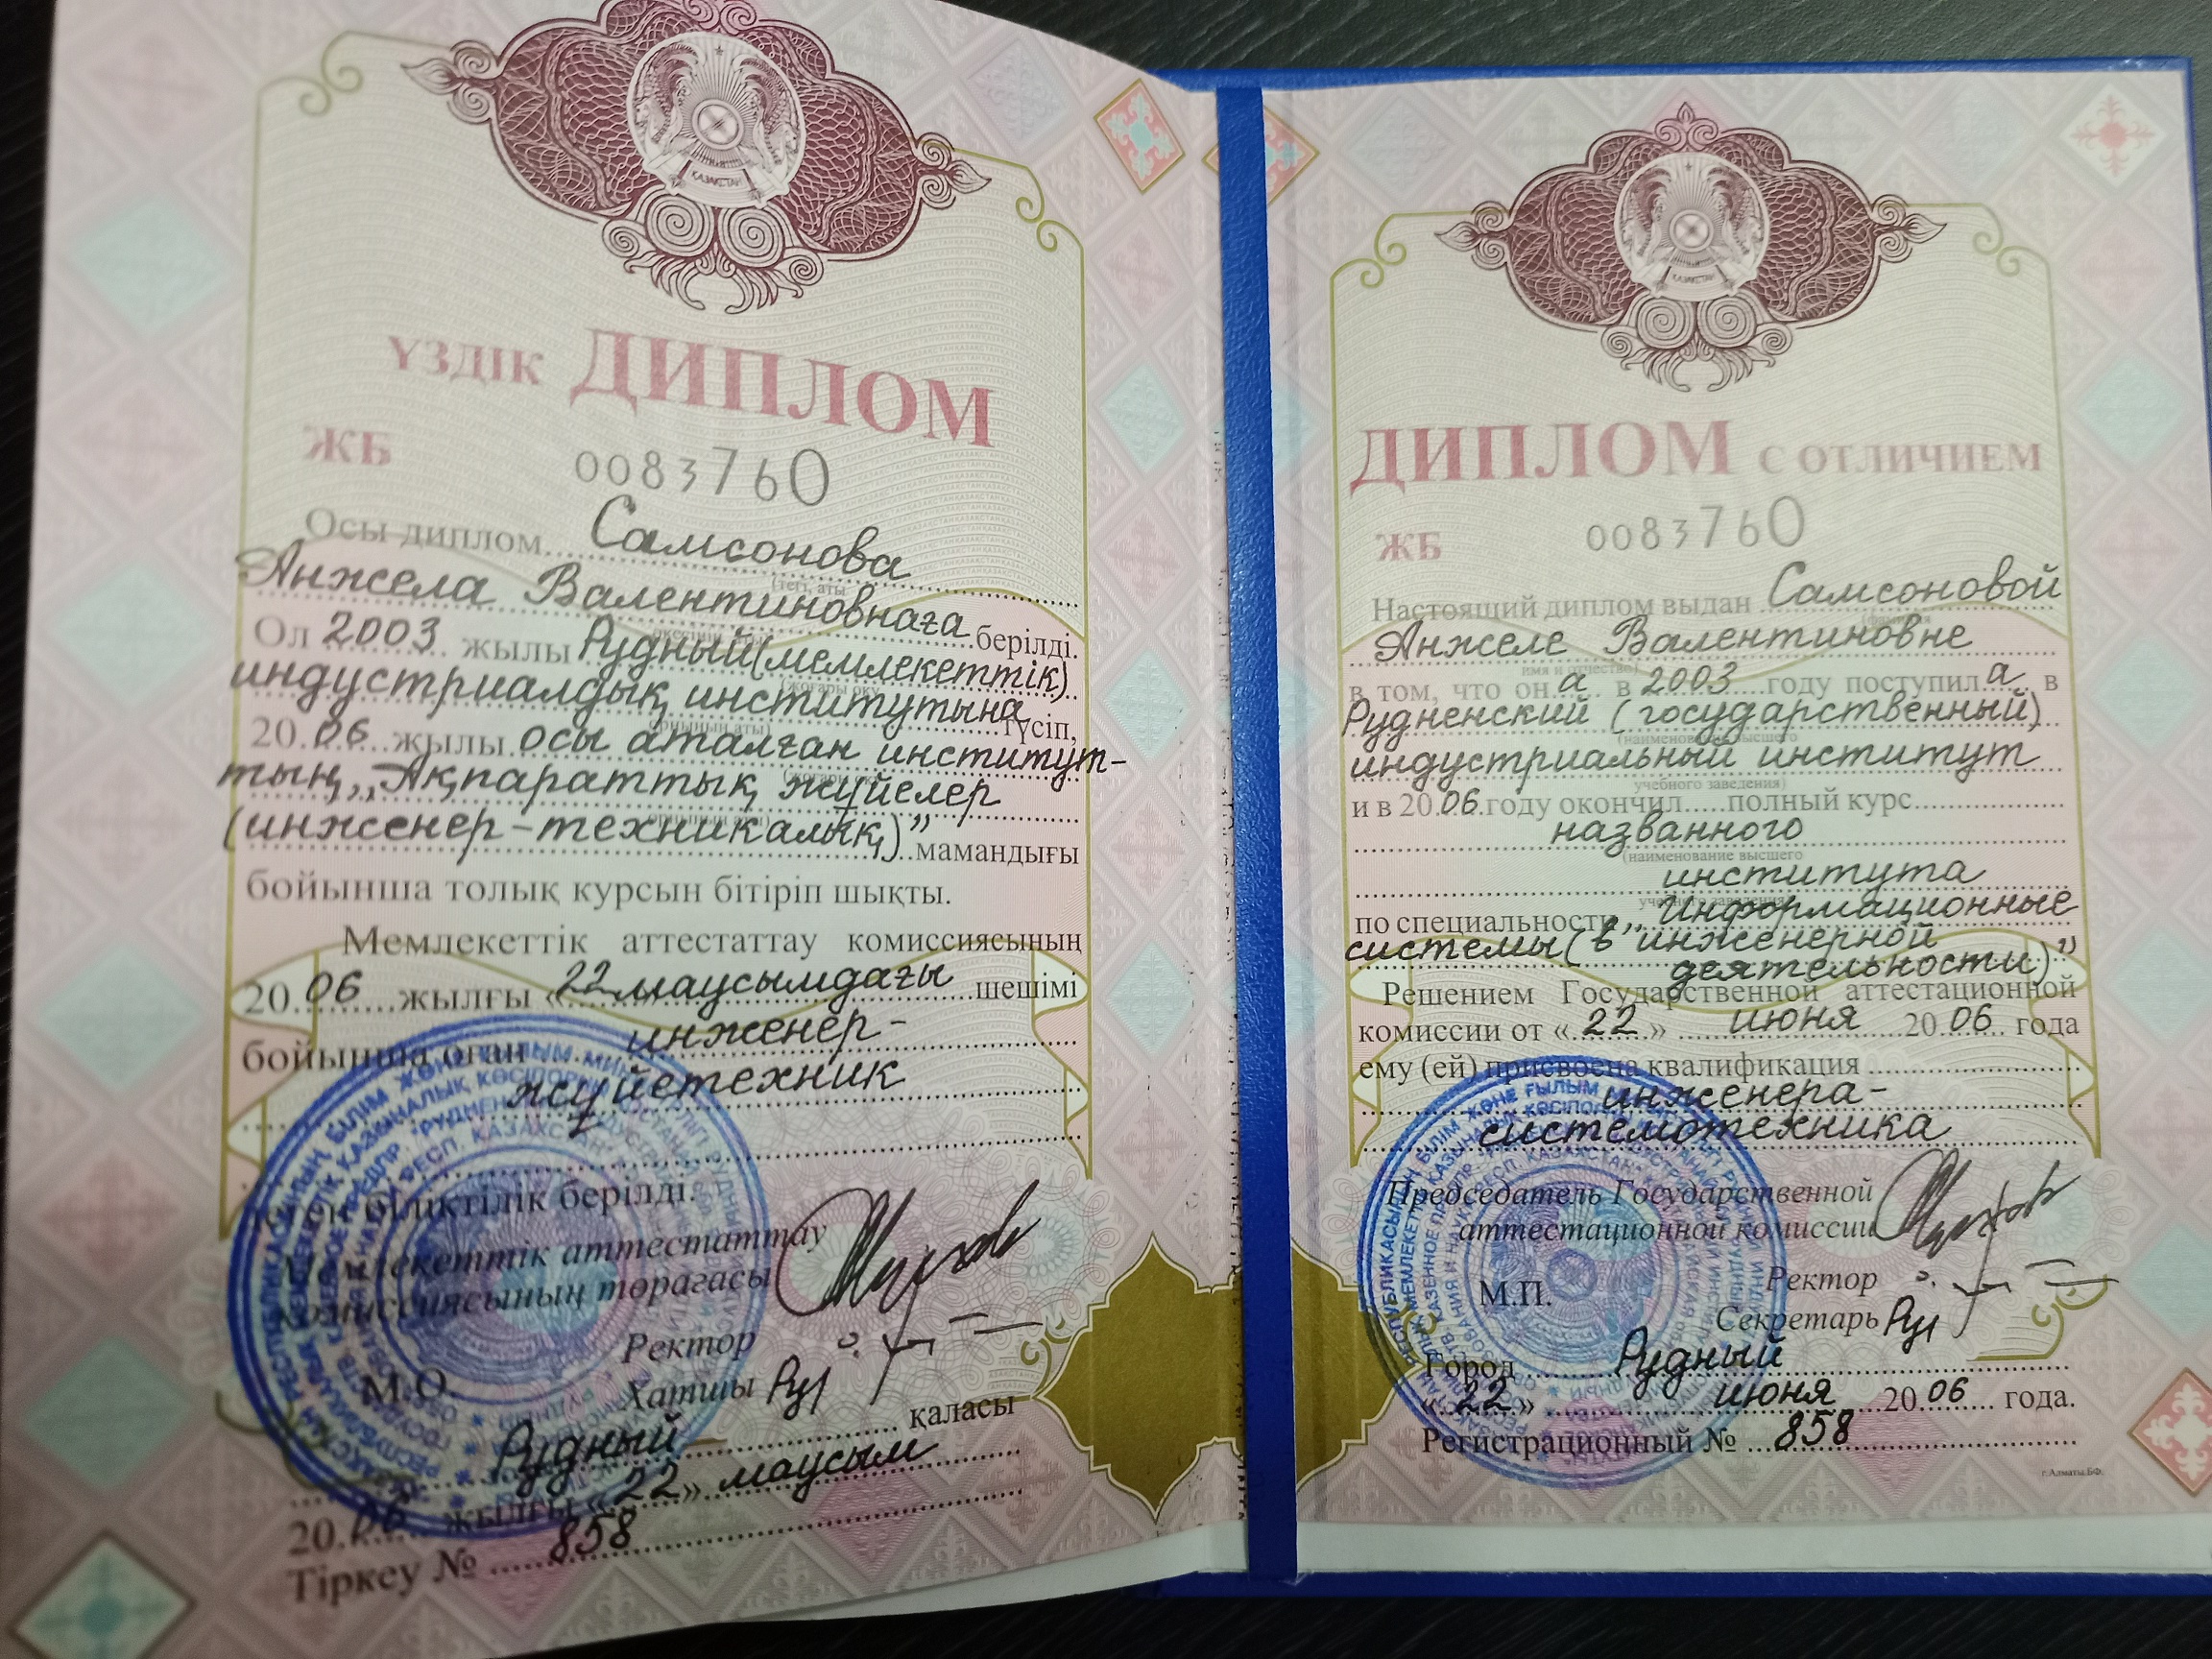 ҚАЗАҚСТАН
ҮЗДІК ДИПЛОМ
ЖБ 0083760
Осы диплом Самсонова
(тегі, аты
Анжела Валентиновнаға берілді.
Ол 2003 жылы Рудный (мемлекеттік)
индустриалдық институтына түсіп,
20 06 жылы осы аталған институт-
тың „Ақпараттық жүйелер
(инженер-техникалық)” мамандығы
бойынша толық курсын бітіріп шықты.
Мемлекеттік аттестаттау комиссиясының
20 06 жылғы «22 маусымдағы шешімі
бойынша оған инженер-
жүйетехник
деген біліктілік берілді.
Мемлекеттік аттестаттау
комиссиясының төрағасы
Ректор
М.О. Хатшы
Рудный қаласы
20 06 жылғы «22» маусым
Тіркеу № 858
ҚАЗАҚСТАН
ДИПЛОМ С ОТЛИЧИЕМ
ЖБ 0083760
Настоящий диплом выдан Самсоновой
Анжеле Валентиновне
имя и отчество)
в том, что он а в 2003 году поступил а в
Рудненский (государственный)
(наименование высшего
индустриальный институт
учебного заведения)
и в 20 06 году окончил полный курс
названного
(наименование высшего
института
учебного заведения)
по специальности „Информационные
системы (в инженерной
деятельности)”
Решением Государственной аттестационной
комиссии от «22» июня 20 06 года
ему (ей) присвоена квалификация
инженера-
системотехника
Председатель Государственной
аттестационной комиссии
М.П. Ректор
Секретарь
Город Рудный
«22» июня 20 06 года.
Регистрационный № 858
г.Алматы.БФ.